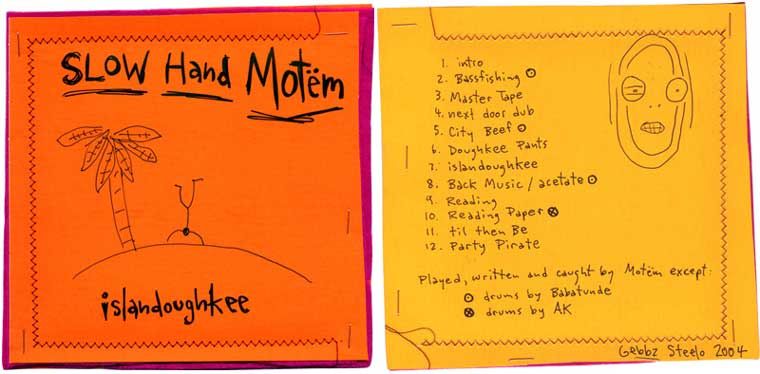 SLOW Hand Motëm
islandoughkee
1. intro
2. Bassfishing ⊙
3. Master Tape
4. next door dub
5. City Beef ⊙
6. Doughkee Pants
7. islandoughkee
8. Back Music / acetate ⊙
9. Reading
10. Reading Paper ⊗
11. til then Be
12. Party Pirate
Played, written and caught by Motëm except:
⊙ drums by Babatunde
⊗ drums by AK
Gebbz Steelo 2004